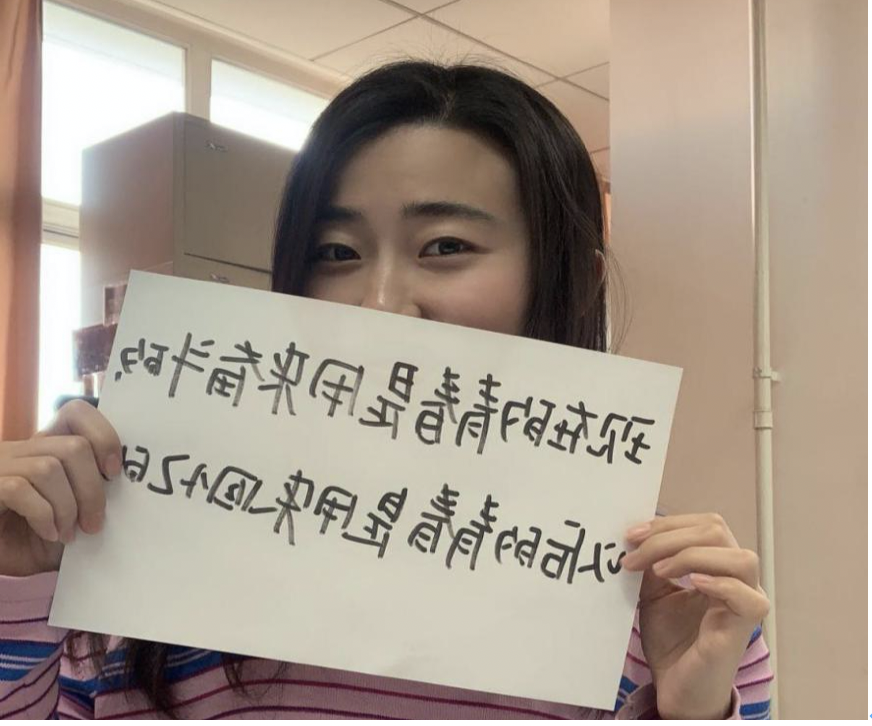 现在的青春是用来奋斗的,
以后的青春是用来回忆的